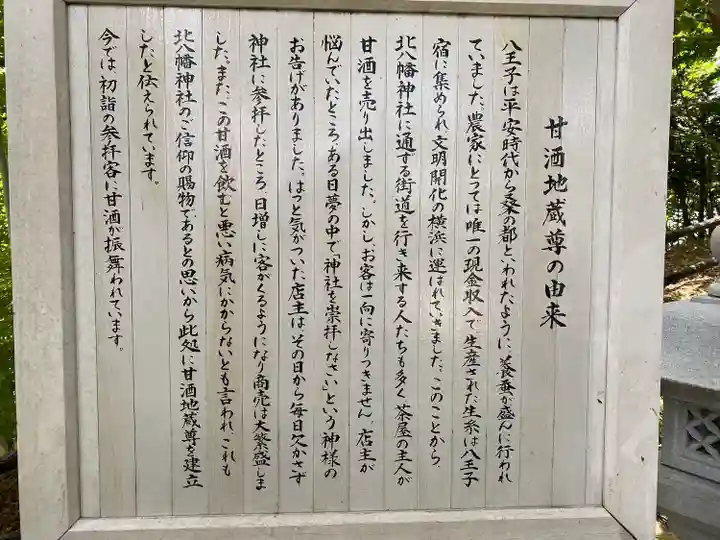 甘酒地蔵尊の由来
八王子は平安時代から桑の都といわれたように、養蚕が盛んに行われ
ていました。農家にとっては唯一の現金収入で生産された生糸は八王子
宿に集められ文明開化の横浜に運ばれていきました。このことから、
北八幡神社に通ずる街道を行き来する人たちも多く、茶屋の主人が
甘酒を売り出しました。しかし、お客は一向に寄りつきません。店主が
悩んでいたところ、ある日夢の中で「神社を崇拝しなさい」という神様の
お告げがありました。はっと気がついた店主は、その日から毎日欠かさず
神社に参拝したところ、日増しに客がくるようになり商売は大繁盛しま
した。また、この甘酒を飲むと悪い病気にかからないとも言われ、これも
北八幡神社のご信仰の賜物であるとの思いから此処に甘酒地蔵尊を建立
したと伝えられています。
今では、初詣の参拝客に甘酒が振舞われています。